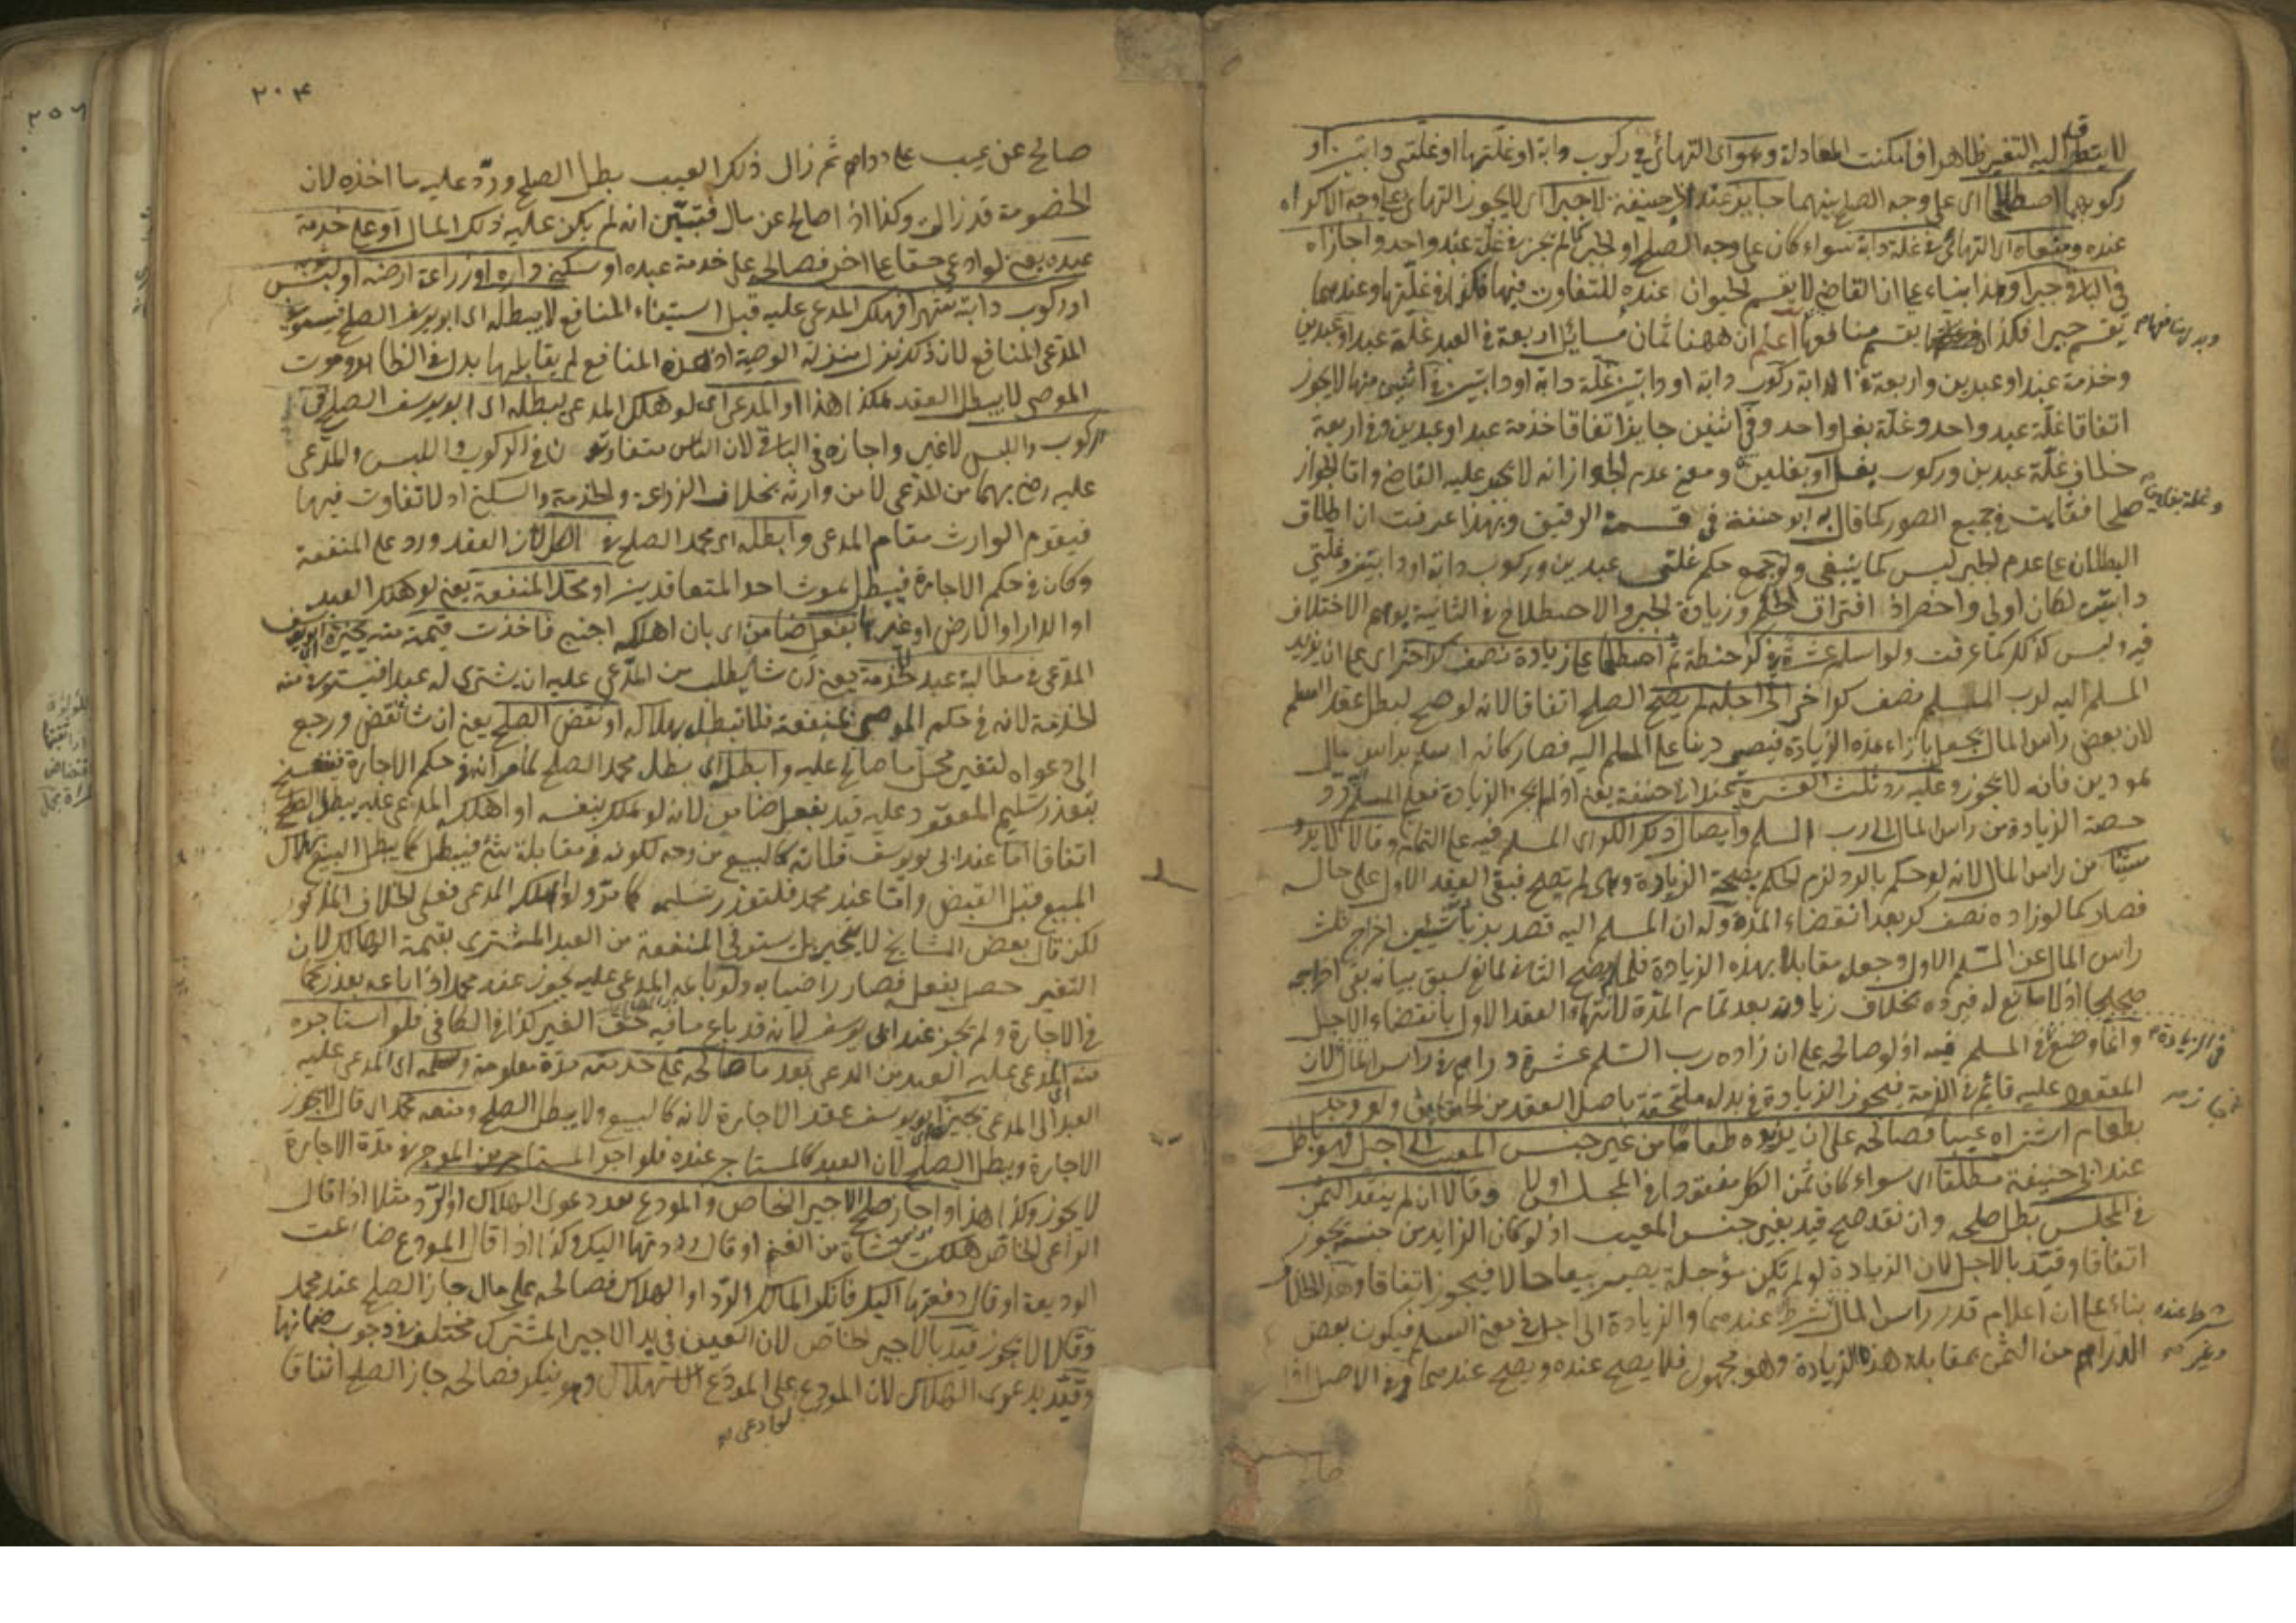 لا يتطرق اليه التغير ظاهرا فامكنت المعادلة وهو اى التهائى فى ركوب دابة او غلتها او غلتى دابتين او
ركوبهما اصطلاحا اى على وجه الصلح بينهما جايز عند ابى حنيفة لا جبرا اى لا يجوز التهائى على وجه الاكراه
عنده ومنعاه اى التهائى فى غلة دابة سواء كان على وجه الصلح او الجبر كما لم يجز فى غلة عبد واحد واجازاه
فى الباقى جبرا وهذا بناء على ان القاضى لا يقسم الحيوان عنده للتفاوت فيها فكذا فى غلتها وعندهما
يقسم جبرا فكذا يقسم منافعها اعلم ان ههنا ثمان مسائل اربعة فى العبد غلة عبد او عبدين
وخدمة عبد او عبدين واربعة فى الدابة ركوب دابة او دابتين غلة دابة او دابتين فى اثنين منها لا يجوز
اتفاقا غلة عبد واحد وغلة بغل واحد وفى اثنين جايز اتفاقا خدمة عبد او عبدين وفى اربعة
خلاف غلة عبدين وركوب بغل او بغلين ومعنى عدم الجواز انه لا يجبر عليه القاضى واما الجواز
وغلة بغلين
صلحا فثابت فى جميع الصور كما قال به ابو حنيفة فى قسمة الرقيق وبهذا عرفت ان اطلاق
البطلان على عدم الجبر ليس كما ينبغى ولو جمع حكم غلتى عبدين وركوب دابة او دابتين وغلتى
دابتين لكان اولى واخصر اذ افتراق الحكم وزيادة الجبر والاصطلاح فى الثانية يوهم الاختلاف
فيه وليس كذلك كما عرفت ولو اسلم عشرة فى كر حنطة ثم اصطلحا على زيادة نصف كر اخر اى على ان يزيد
المسلم اليه لرب السلم نصف كر اخر الى اجله لم يصح الصلح اتفاقا لانه لو صح لبطل عقد السلم
لان بعض راس المال يجعل بازاء هذه الزيادة فيصير دينا على المسلم اليه فصار كانه اسلم براس مال
هو دين فانه لا يجوز وعليه رد ثلث العشرة عند ابى حنيفة يعنى اذا لم يجز الزيادة فعلى المسلم رد
حصة الزيادة من راس المال الى رب السلم وايصال ذلك الكر اى المسلم فيه على التمام وقالا لا يرد
شيئا من راس المال لانه لو حكم بالرد لزم الحكم بصحة الزيادة وهى لم تصح فبقى العقد الاول على حاله
فصار كما لو زاده نصف كر بعد انقضاء المدة وله ان المسلم اليه قصد بذا شيئين اخراج ثلث
راس المال عن السلم الاول وجعله مقابلا بهذه الزيادة فلما لم يصح الثانى لمانع سبق بيانه بقى اخراجه
صحيحا اذ لا مانع له فيرده بخلاف زيادته بعد تمام المدة لانتهاء العقد الاول بانقضاء الاجل
فى الزيادة
وانما وضع فى المسلم فيه اذ لو صالحه على ان زاده رب السلم عشرة دراهم فى راس المال لان
المعقود عليه قائم فى الذمة فيجوز الزيادة فى بدله ملتحقة باصل العقد ولو وجد
بطعام اشتراه عيبا فصالحه على ان يزيده طعاما من غير جنس المعيب الى اجل فهو باطل
عند ابى حنيفة مطلقا اى سواء كان ثمن الكر منقودا فى المجلس اولا وقالا ان لم ينقد الثمن
فى المجلس بطل صلحه وان نقد صح قيد بغير جنس المعيب اذ لو كان الزايد من جنسه يجوز
اتفاقا وقيد بالاجل لان الزيادة لو لم تكن مؤجلة يصير بيعا حالا فيجوز اتفاقا وهذا الخلاف
شرط عنده
بناء على ان اعلام قدر راس المال شرط عندهما والزيادة الى اجل فى معنى السلم فيكون بعض
الدراهم من الثمن بمقابلة هذه الزيادة وهو مجهول فلا يصح عنده ويصح عندهما وفى الاصل اذا
٢٠٤
صالح عن عيب على دراهم ثم زال ذلك العيب بطل الصلح ورد عليه ما اخذه لان
الخصومة قد زالت وكذا اذا صالح عن مال فتبين انه لم يكن عليه ذلك المال او على خدمة
عبده يعنى لو ادعى حقا على اخر فصالحه على خدمة عبده او سكنى داره او زراعة ارضه او لبس ثوبه
او ركوب دابة شهرا فهلك المدعى عليه قبل استيفاء المنافع لا يبطله اى ابو يوسف الصلح فيستوفى
المدعى المنافع لان ذلك نزل منزلة الوصية اذ هذه المنافع لم يقابلها بدل فى الظاهر وموت
الموصى لا يبطل العقد فكذا هذا او المدعى اى لو هلك المدعى يبطله اى ابو يوسف الصلح فى
الركوب واللبس لا غير واجازه فى الباقى لان الناس متفاوتون فى الركوب واللبس والمدعى
عليه رضى بهما من المدعى لا من وارثه بخلاف الزراعة والخدمة والسكنى اذ لا تفاوت فيها
فيقوم الوارث مقام المدعى وابطله اى محمد الصلح فى الكل لان العقد ورد على المنفعة
وكان فى حكم الاجارة فيبطل بموت احد المتعاقدين او محل المنفعة يعنى لو هلك العبد
او الدار او الارض او غيرها بفعل ضامن اى بان اهلكه اجنبى فاخذت قيمته منه يخيره ابو يوسف
المدعى فى مطالبة عبد لخدمة يعنى ان شاء يطلب من المدعى عليه ان يشترى له عبدا فيستوفى منه
الخدمة لانه فى حكم الموصى بمنفعة فلا تبطل بهلاكه او نقض الصلح يعنى ان شاء نقض ورجع
الى دعواه لتغير محل ما صالح عليه وابطل اى بطل محمد الصلح لما مر انه فى حكم الاجارة فتنفسخ
بتعذر تسليم المعقود عليه قيد بفعل ضامن لانه لو هلك بنفسه او اهلكه المدعى عليه بطل الصلح
اتفاقا اما عند ابى يوسف فلانه كالبيع من وجه لكونه فى مقابلة شئ فيبطل كما يبطل البيع بهلاك
المبيع قبل القبض واما عند محمد فلتعذر تسليمه كما مر ولو اهلكه المدعى فعلى الخلاف المذكور
لكن قال بعض المشايخ لا يخير بل يستوفى المنفعة من العبد المشترى بقيمة الهالك لان
التغير حصل بفعله فصار راضيا به ولو باعه المدعى عليه يجوز عند محمد اذا باعه بعذر كما
فى الاجارة ولم يجز عند ابى يوسف لانه قد باع ما فيه حق الغير كذا فى الكافى فلو استاجره
منه المدعى عليه العبد من المدعى بعد ما صالحه على خدمته مدة معلومة وسلمه اى المدعى عليه
العبد الى المدعى يجيز ابو يوسف عقد الاجارة لانه كالبيع ولا يبطل الصلح ومنعه محمد اى قال لا يجوز
الاجارة ويبطل الصلح لان العبد كالمستاجر عنده فلو اجر المستاجر من الموجر فى مدة الاجارة
لا يجوز وكذا هذا واجاز صلح الاجير الخاص والمودع بعد دعوى الهلاك او الرد مثلا اذا قال
الراعى الخاص هلكت شاة من الغنم او قال رددتها اليك وكذا اذا قال المودع ضاعت
الوديعة او قال دفعتها اليك فانكر المالك الرد او الهلاك فصالحه على مال جاز الصلح عند محمد
وقالا لا يجوز قيد بالاجير الخاص لان العين فى يد الاجير المشترك مختلف فى وجوب ضمانها
وقيد بدعوى الهلاك لان المودع على المودع الاستهلاك وهو ينكر فصالحه جاز الصلح اتفاقا
لو ادعى
٢٥٦